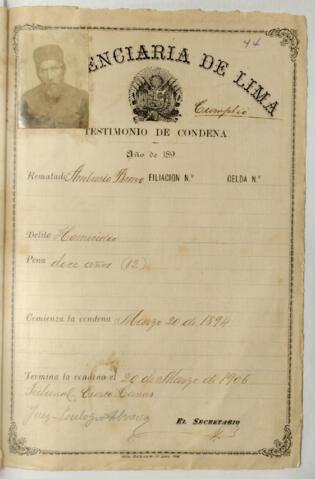 44
ENCIARIA DE LIMA
Cumplió
TESTIMONIO DE CONDENA
Año de 189
Rematado Ambrosio Bravo FILIACION N.° CELDA N.°
Delito Homicidio
Pena doce años (12)
Comienza la condena Marzo 20 de 1894
Termina la condena el 20 de Marzo de 1906
Tribunal Cuzco
Juez
EL SECRETARIO